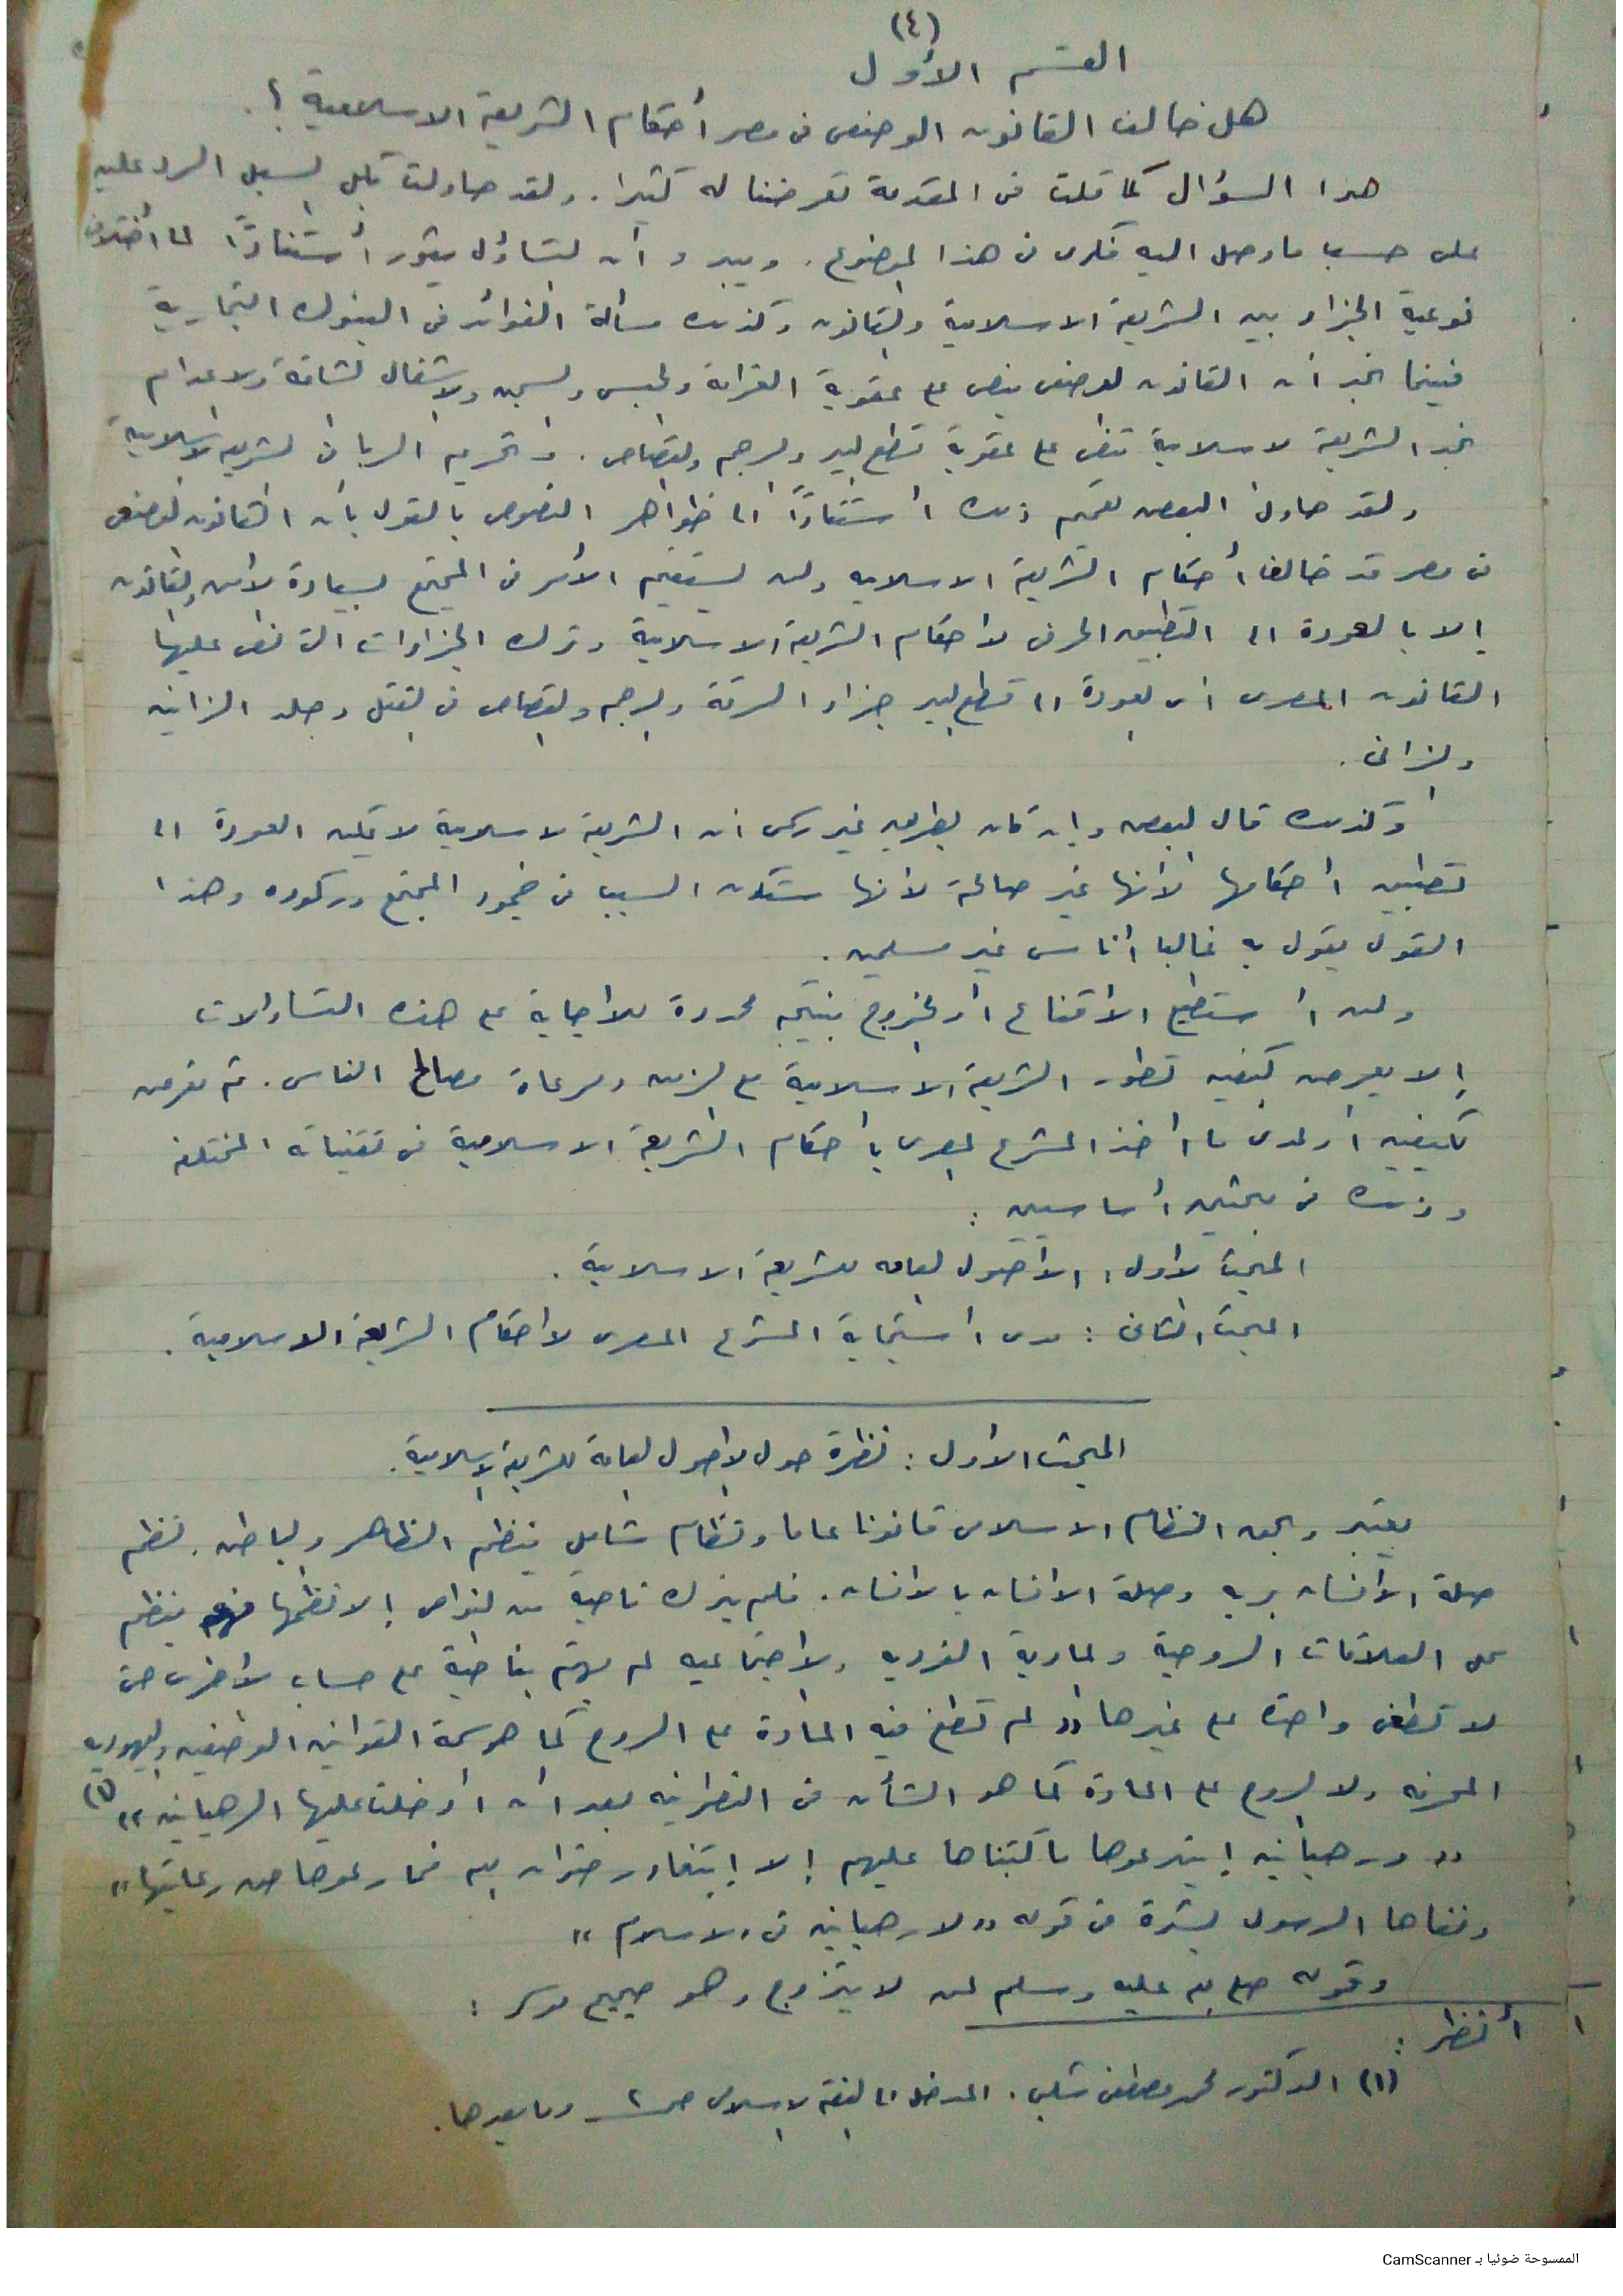 (٤)
القسم الأول
هل خالف القانون الوضعى فى مصر أحكام الشريعة الاسلامية ؟.
هذا السؤال كما قلت فى المقدمة تعرضنا له كثيرا. ولقد حاولت بكل السبل الرد عليه
على حسب ما وصل اليه فكرى فى هذا الموضوع. ويبدو أن التساؤل يثور أستنادًا لما أختلاف
نوعية الجزاء بين الشريعة الاسلامية والقانون وكذلك مسألة الفوائد فى البنوك التجارية
فبينما نجد أن القانون الوضعى ينص على عقوبة الغرامة والحبس والسجن والاشغال الشاقة والاعدام
نجد الشريعة الاسلامية تنص على عقوبة قطع اليد والرجم والقصاص. وتحريم الربا فى الشريعة الاسلامية
ولقد حاول البعض تعميم ذلك أستنادًا الى ظواهر النصوص بالقول بأن القانون الوضعى
فى مصر قد خالف أحكام الشريعة الاسلاميه ولن يستقيم الأمر فى المجتمع لسيادة الأمن والقانون
إلا بالعودة الى التطبيق الحرفى لأحكام الشريعة الاسلامية وترك الجزاءات التى نص عليها
القانون المصرى اى العودة الى قطع اليد جزاء السرقة والرجم والقصاص فى القتل وجلد الزانيه
والزانى.
وكذلك قال البعض وإن كان بطريق غير رسمى ان الشريعة الاسلامية لا يمكن العودة الى
تطبيق أحكامها لأنها غير صالحة لأنها ستكون السبب فى جمود المجتمع وركوده وهذا
القول يقول به غالبا أناس غير مسلمين.
ولن أستطيع الأقناع أو الخروج بنتيجه محددة للاجابة على هذه التساؤلات
إلا بعرض كيفيه تطور الشريعة الاسلامية مع الزمن ومرعاة مصالح الناس. ثم نعرض
لكيفيه أو لمدى ما أخذ المشرع المصرى بأحكام الشريعة الاسلامية فى تقنيناته المختلفه
وذلك فى مبحثين أساسيين :
المبحث الأول : الأصول العامه للشريعة الاسلامية.
المبحث الثانى : مدى أستجابة المشرع المصرى لأحكام الشريعة الاسلامية.
المبحث الأول : نظرة حول الاصول العامة للشريعة الاسلامية.
يعتبر وبحق النظام الاسلامى قانونا عاما ونظام شامل ينظم الظاهر والباطن. نظم
صلة الأنسان بربه وصلة الانسان بالانسان. فلم يترك ناحية من النواحى إلا نظمها فهو ينظم
كل العلاقات الروحية والمادية الفرديه والاجتماعيه لم يهتم بناحية على حساب الاخرى حتى
لا تطغى واحدة على غيرها "لم تطغ فيه المادة على الروح كما هو سمة القوانين الوضعيه واليهوديه
المحرفه ولا الروح على المادة كما هو الشأن فى النصرانيه بعد أن أدخلت عليها الرهبانيه" (١)
"ورهبانيه إبتدعوها ما كتبناها عليهم إلا إبتغاء رضوان الله فما رعوها حق رعايتها"
ونفاها الرسول بشدة فى قوله "لا رهبانيه فى الاسلام"
وقوله صلى الله عليه وسلم لمن لا يتزوج وهو صحيح موسر :
أنظر :
(١) الدكتور محمد مصطفى شلبى. المدخل الى الفقه الاسلامى صـ٢ وما بعدها.
الممسوحة ضوئيا بـ CamScanner